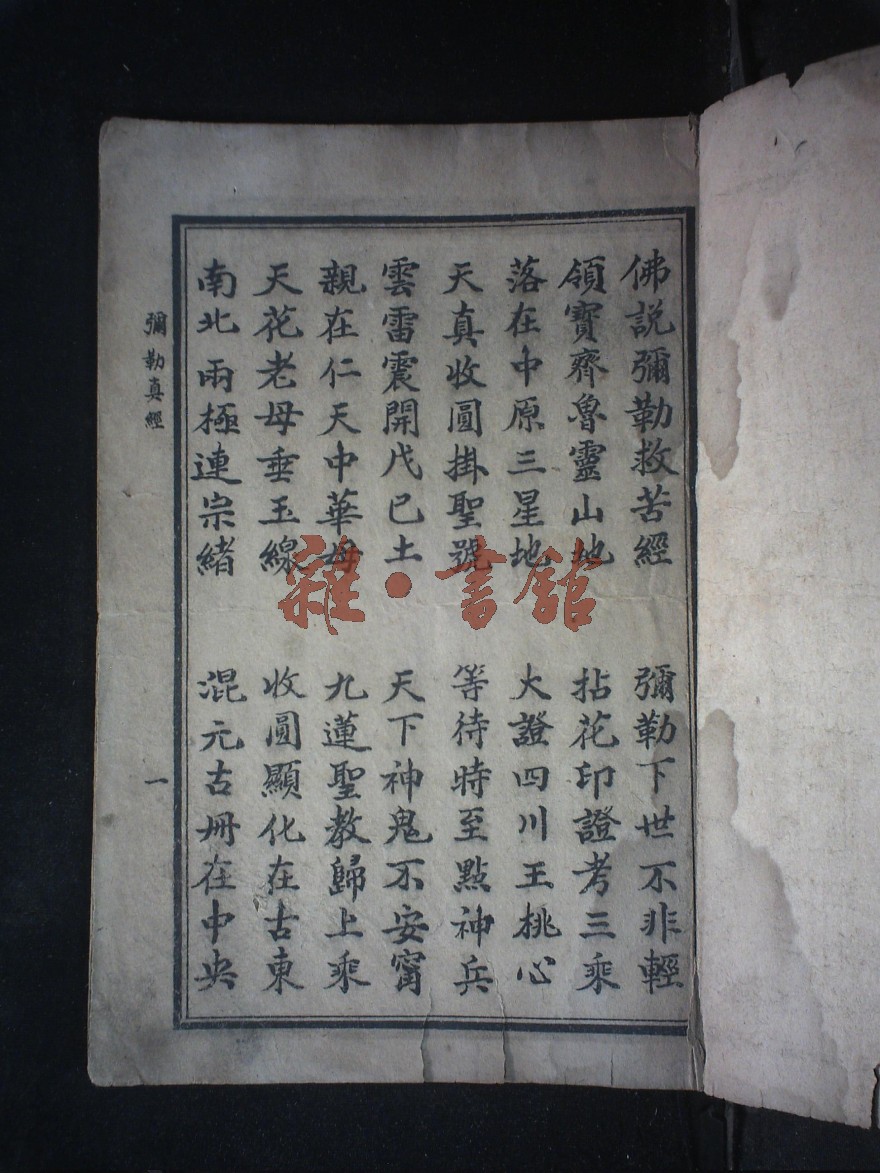 佛説彌勒救苦經 彌勒下世不非輕
領寶齊魯靈山地 拈花印證考三乘
落在中原三星地 大證四川王桃心
天真收圓掛聖號 等待時至點神兵
雲雷震開戊已土 天下神鬼不安甯
親在仁天中華母 九蓮聖教歸上乘
天花老母垂玉線 收圓顯化在古東
南北兩極連宗緒 混元古册在中央
彌勒真經
一
雜·書館